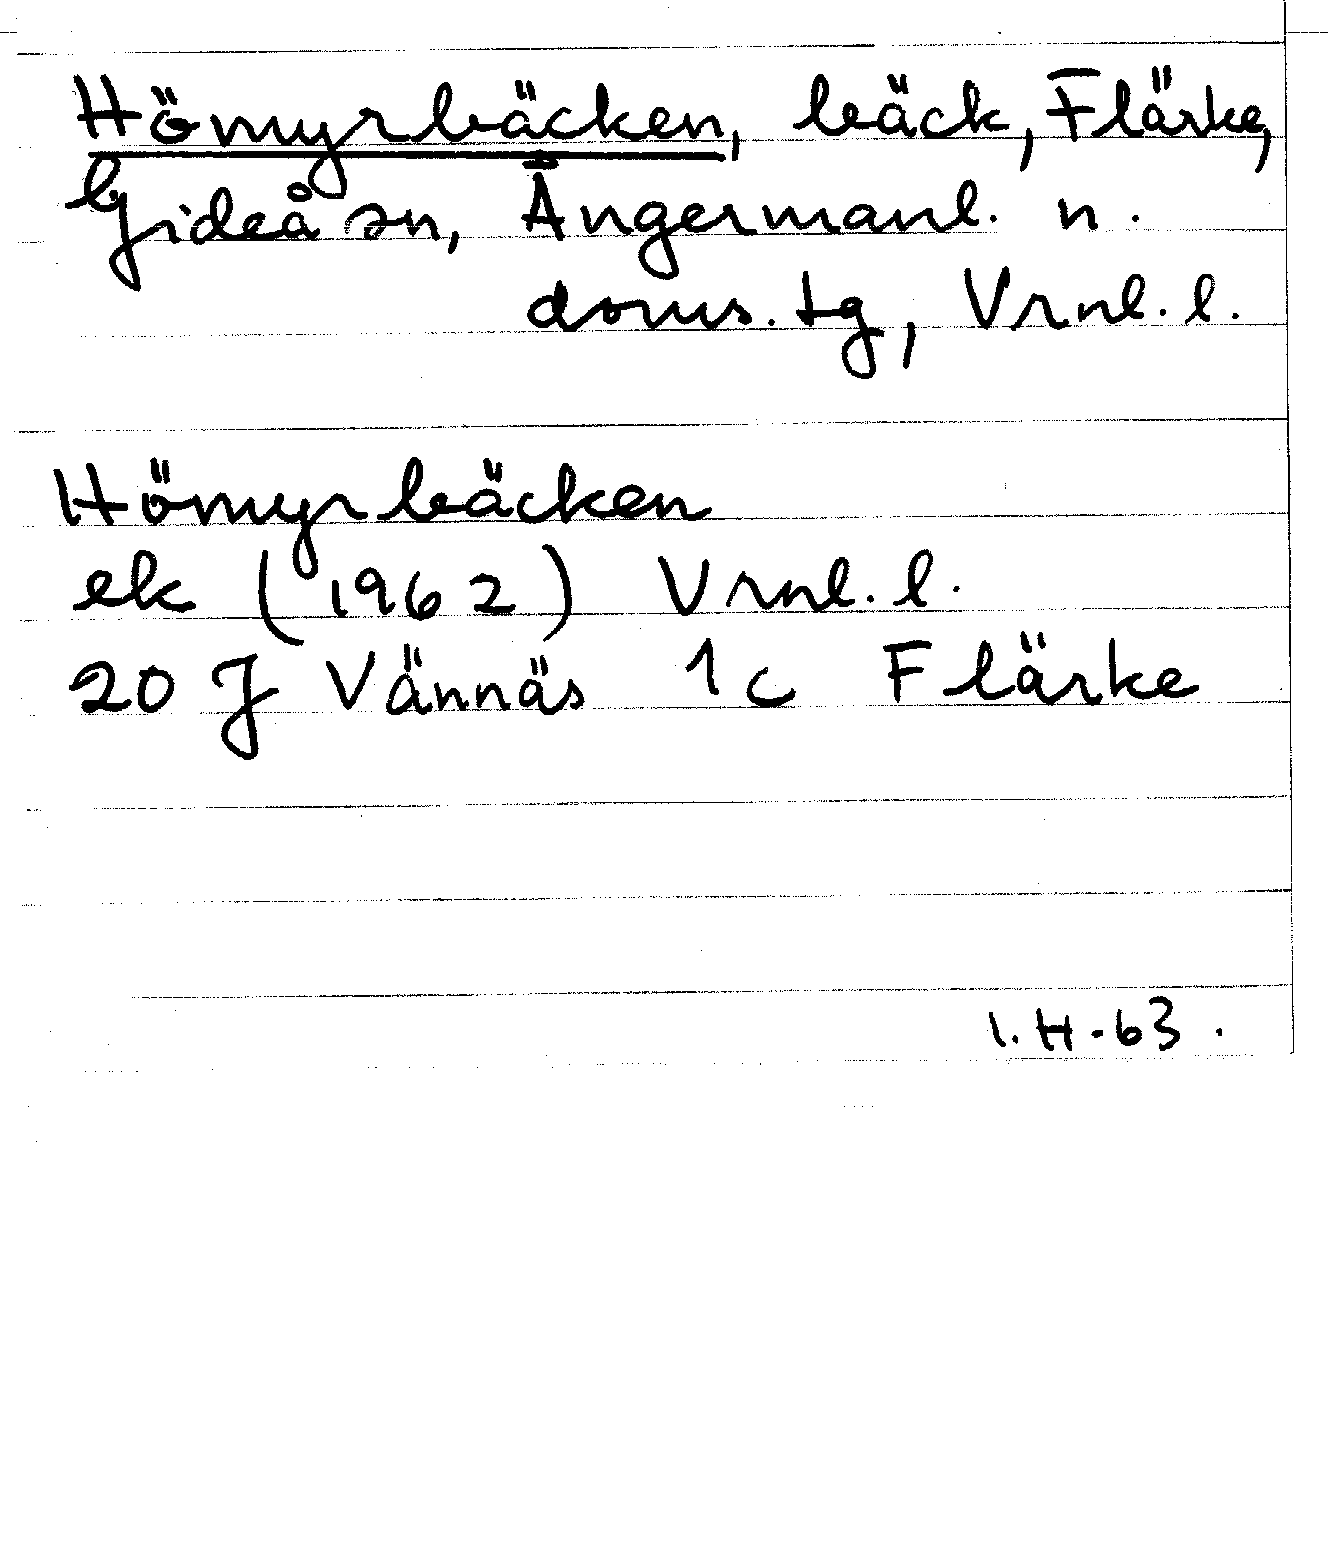 Hömyrbäcken, bäck, Flärke,
Gideå sn, Ångermanl. n.
doms. tg, Vrnl. l.
Hömyrbäcken
ek (1962) Vrnl. l.
20 J Vännäs 1c Flärke
I. H. 63.